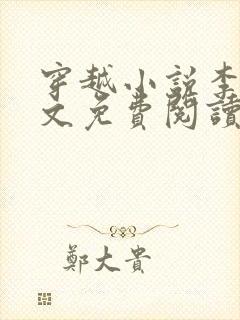 穿越小說李
文免費閱讀
鄭大貴